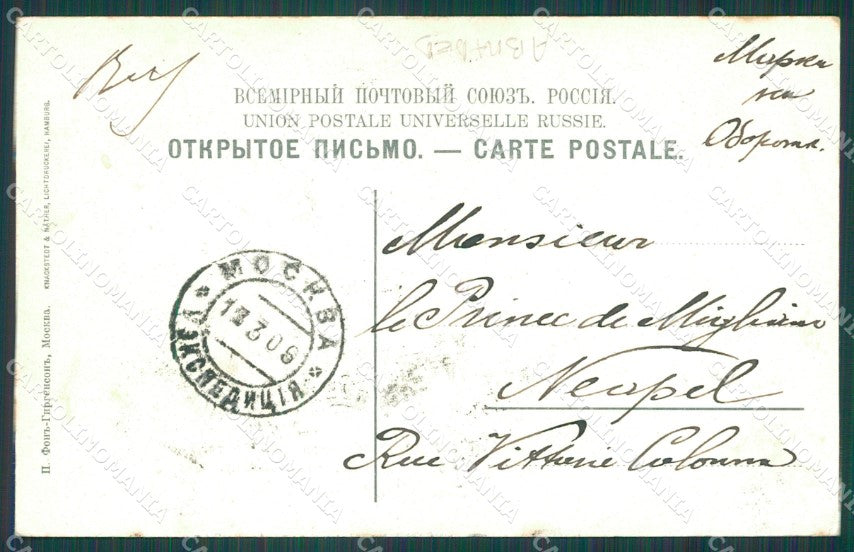 Марка
на
Оборотѣ.
ВСЕМІРНЫЙ ПОЧТОВЫЙ СОЮЗЪ. РОССІЯ.
UNION POSTALE UNIVERSELLE RUSSIE.
ОТКРЫТОЕ ПИСЬМО. — CARTE POSTALE.
Monsieur
le Prince de Migliano
Neapel
Rue Vittorie Colonna
МОСКВА
13.3.09
V ЭКСПЕДИЦІЯ
П. Фонъ-Гиргенсонъ, Москва. KNACKSTEDT & NÄTHER, LICHTDRUCKEREI, HAMBURG.
CARTOLINOMANIA